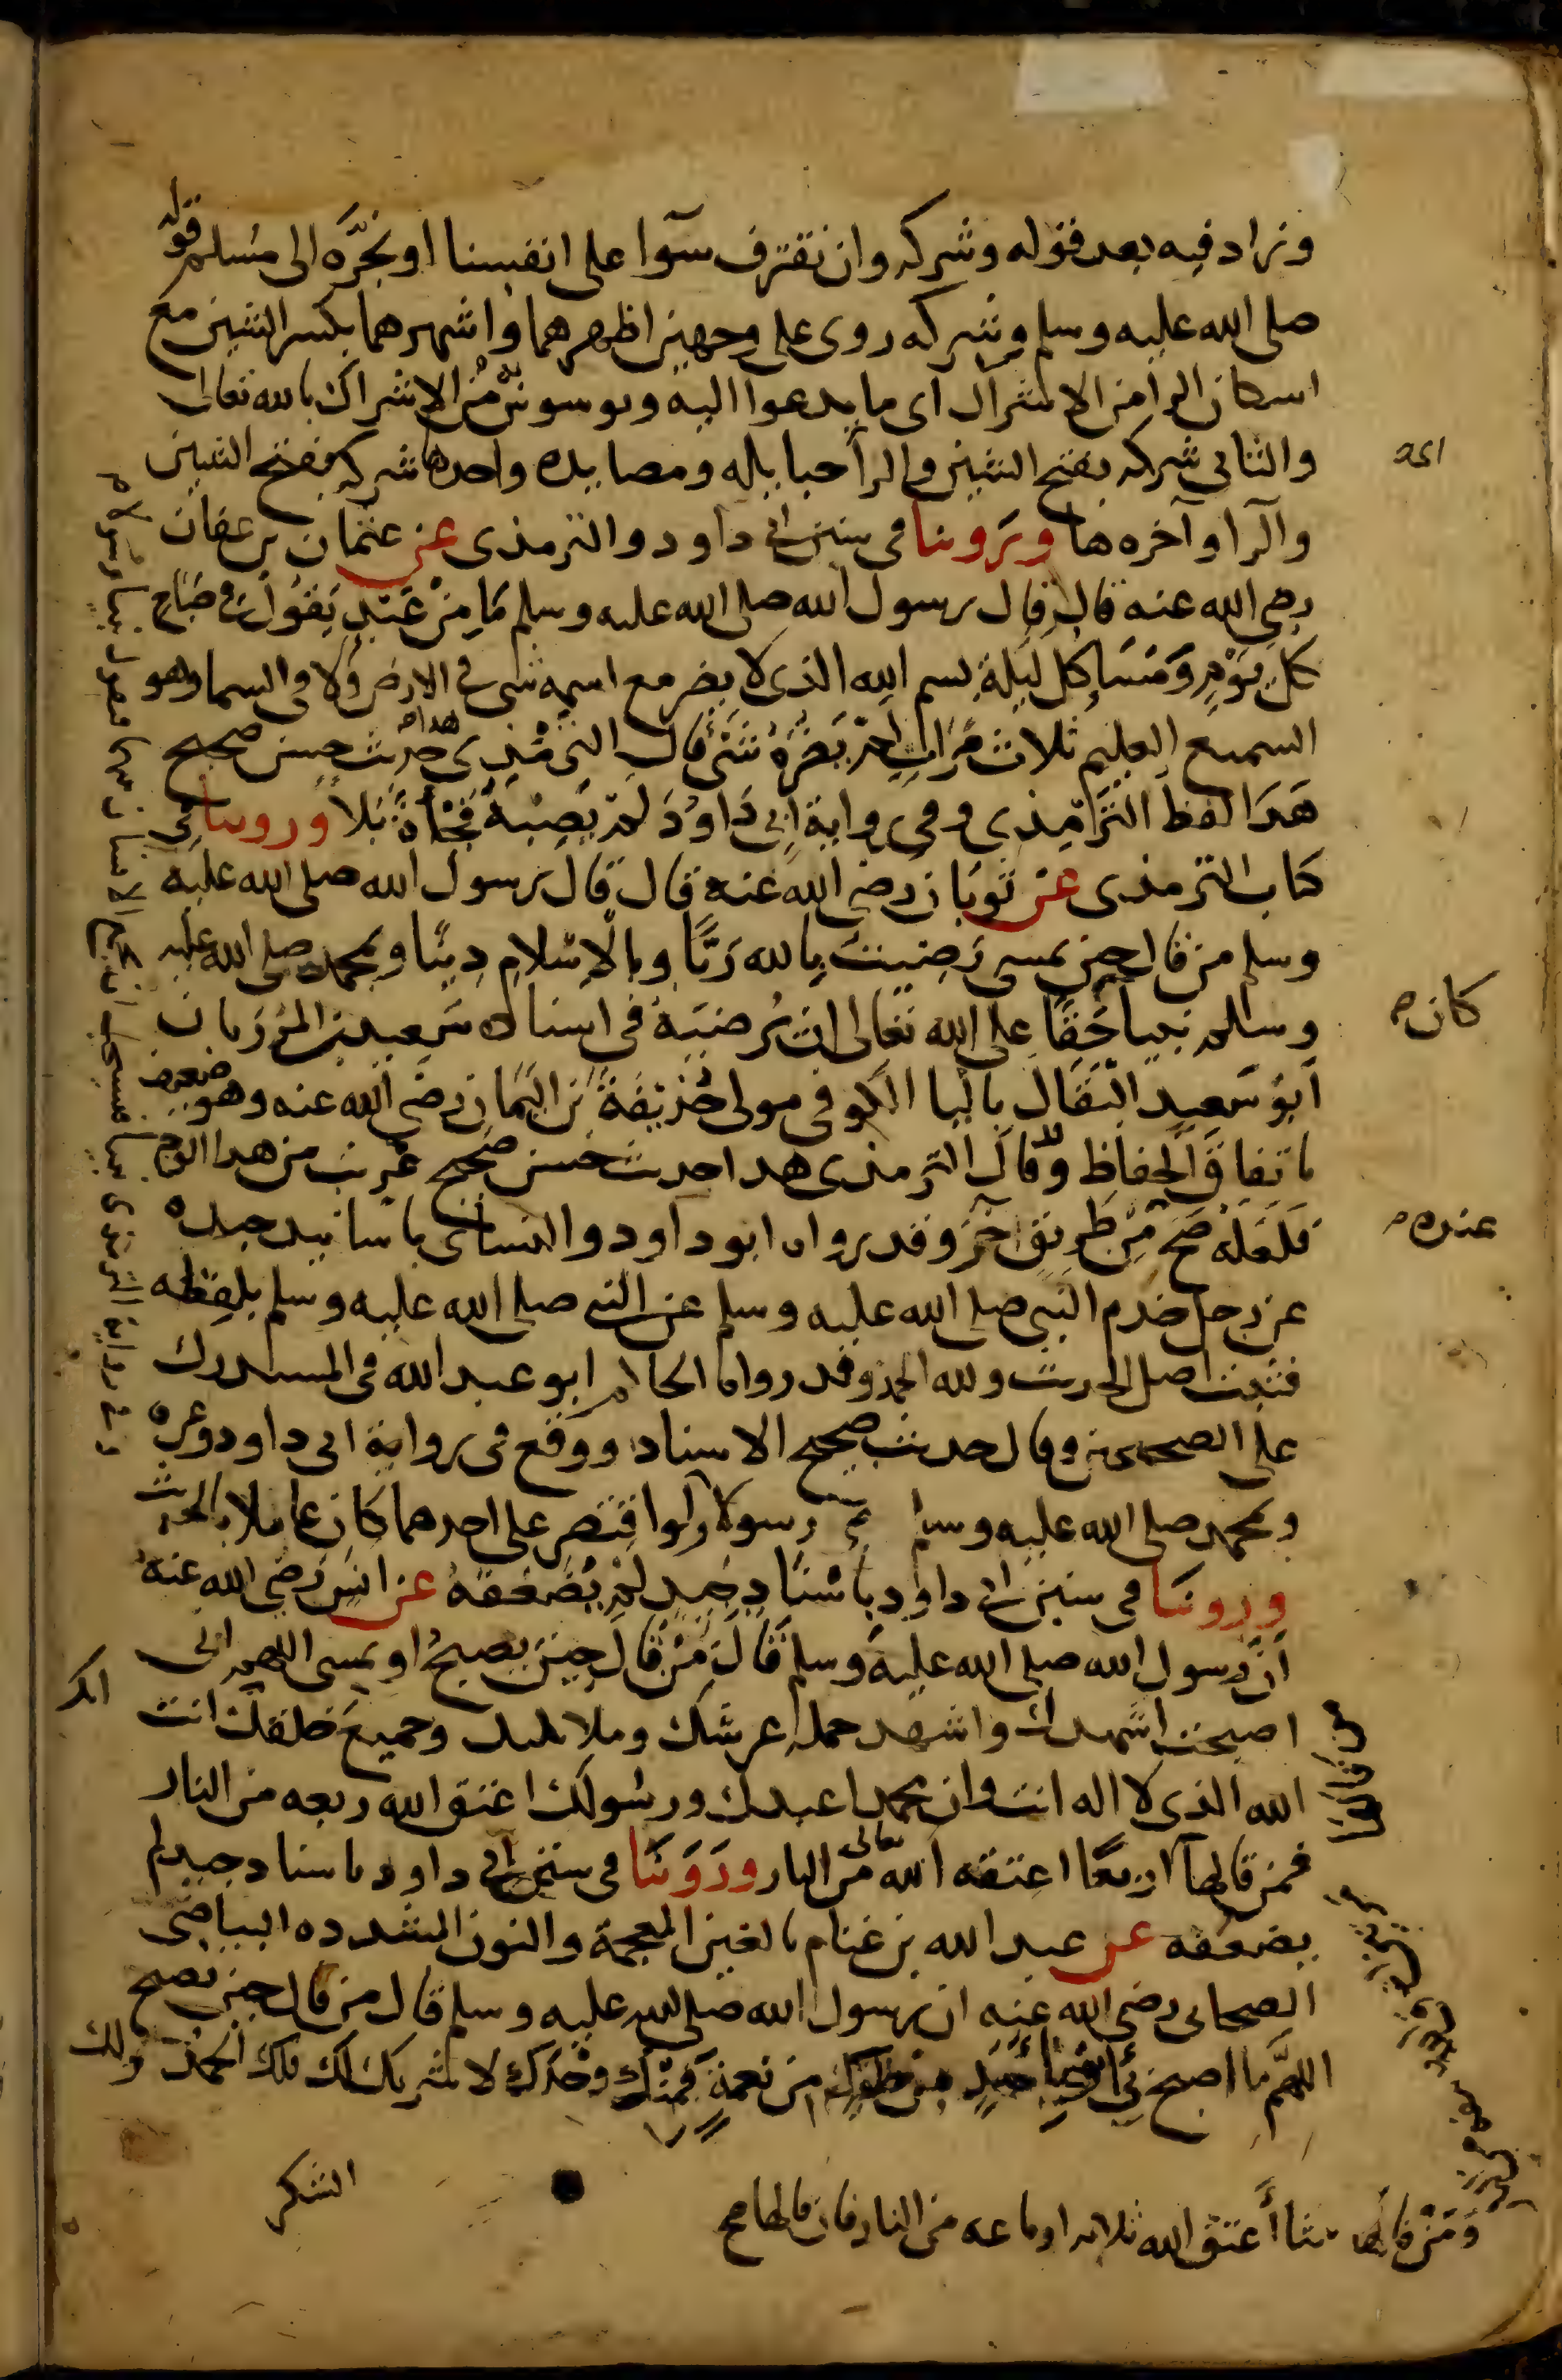 وزاد فيه بعد قوله وشركه وان نقترف سوآ على انفسنا او نجره الى مسلم قوله
صلى الله عليه وسلم وشركه روى على وجهين اظهرهما واشهرهما بكسر الشين مع
اسكان الرا من الاشراك اى ما يدعوا اليه ويوسوس به من الاشراك بالله تعالى
والثانى شركه بفتح الشين والرا حبايله ومصايده واحدها شركه بفتح الشين
والرا وآخره ها وروينا فى سنن ابى داود والترمذى عن عثمان بن عفان
رضى الله عنه قال قال رسول الله صلى الله عليه وسلم مَا مِنْ عَبْدٍ يَقُولُ فى صَبَاحِ
كل يَوْمٍ وَمَسَاءِ كل لَيلَةٍ بسم الله الذى لا يضر مع اسمه شى فى الارض ولا فى السما وهو
السميع العليم ثلاث مَرَّاتٍ لم يَضُرَّهُ شَىْءٌ قال الترمذى هذا حديث حسن صحيح
هَذَا لفظ الترمذى وفى رواية ابى دَاوُدَ لم تُصِبْهُ فَجْأَةُ بَلاء وروينا فى
كتاب الترمذى عن ثوبان رضى الله عنه قال قال رسول الله صلى الله عليه
وسلم من قال حين يمسى رَضِيتُ بِالله رَبًّا وبالإِسْلامِ دِينًا وبمحمد صلى الله عليه
وسلم نبيا حَقًّا على الله تعالى ان يُرضيَه فى اسناده سَعِيد بن المرزبان
أبو سَعِيد البَقَّال بالبا الكوفى مولى حُذَيْفَةَ بن اليَمَان رضى الله عنه وهو ضعيف
باتفاق الحفاظ وقال الترمذى هذا حديث حسن صحيح غريب من هذا الوجه
فلعله صَحَّ مِنْ طَرِيقٍ آخر وقد رواه ابو داود والنساى باسانيد جيده
عن رجل خدم النبى صلى الله عليه وسلم عن النبى صلى الله عليه وسلم بلفظه
فثبت اصل الحديث ولله الحمد وقد رواه الحاكم ابو عبد الله فى المستدرك
على الصحيحين وقال حديث صحيح الاسناد ووقع فى رواية ابى داود وغيره
وبمحمد صلى الله عليه وسلم رسولا ولو اقتصر على احدهما كان عاملا بالحديث
وروينا فى سنن ابى داود بِاسْنَادٍ جَيد لم يُضَعِّفْهُ عن انس رضى الله عنه
أنَّ رسول الله صلى الله عليه وسلم قَالَ مَنْ قَالَ حِينَ يُصبحُ او يمسى اللهم انى
اصبحت اشهدك واشهد حملة عرشك وملايكتك وجميع خلقك انك انت
الله الذى لا اله الا انت وان محمدا عبدك ورسولك اعتق الله ربعه من النار
فمن قالها اربعا اعتقه الله تعالى من النار وروينا فى سنن ابى داود باسناد جيد لم
يضعفه عن عبد الله بن غنام بالغين المعجمة والنون المشدده البياضى
الصحابى رضى الله عنه ان رسول الله صلى الله عليه وسلم قال من قال حين يصبح
اللهُمَّ ما اصبح بى من نعمةٍ فَمِنْكَ وَحْدَكَ لا شريك لك فلك الحمد ولك
الشكر
كان
عنده
وَمَنْ قالها ثلثا أَعتق الله ثلاثه ارباعه من النار فان قالها